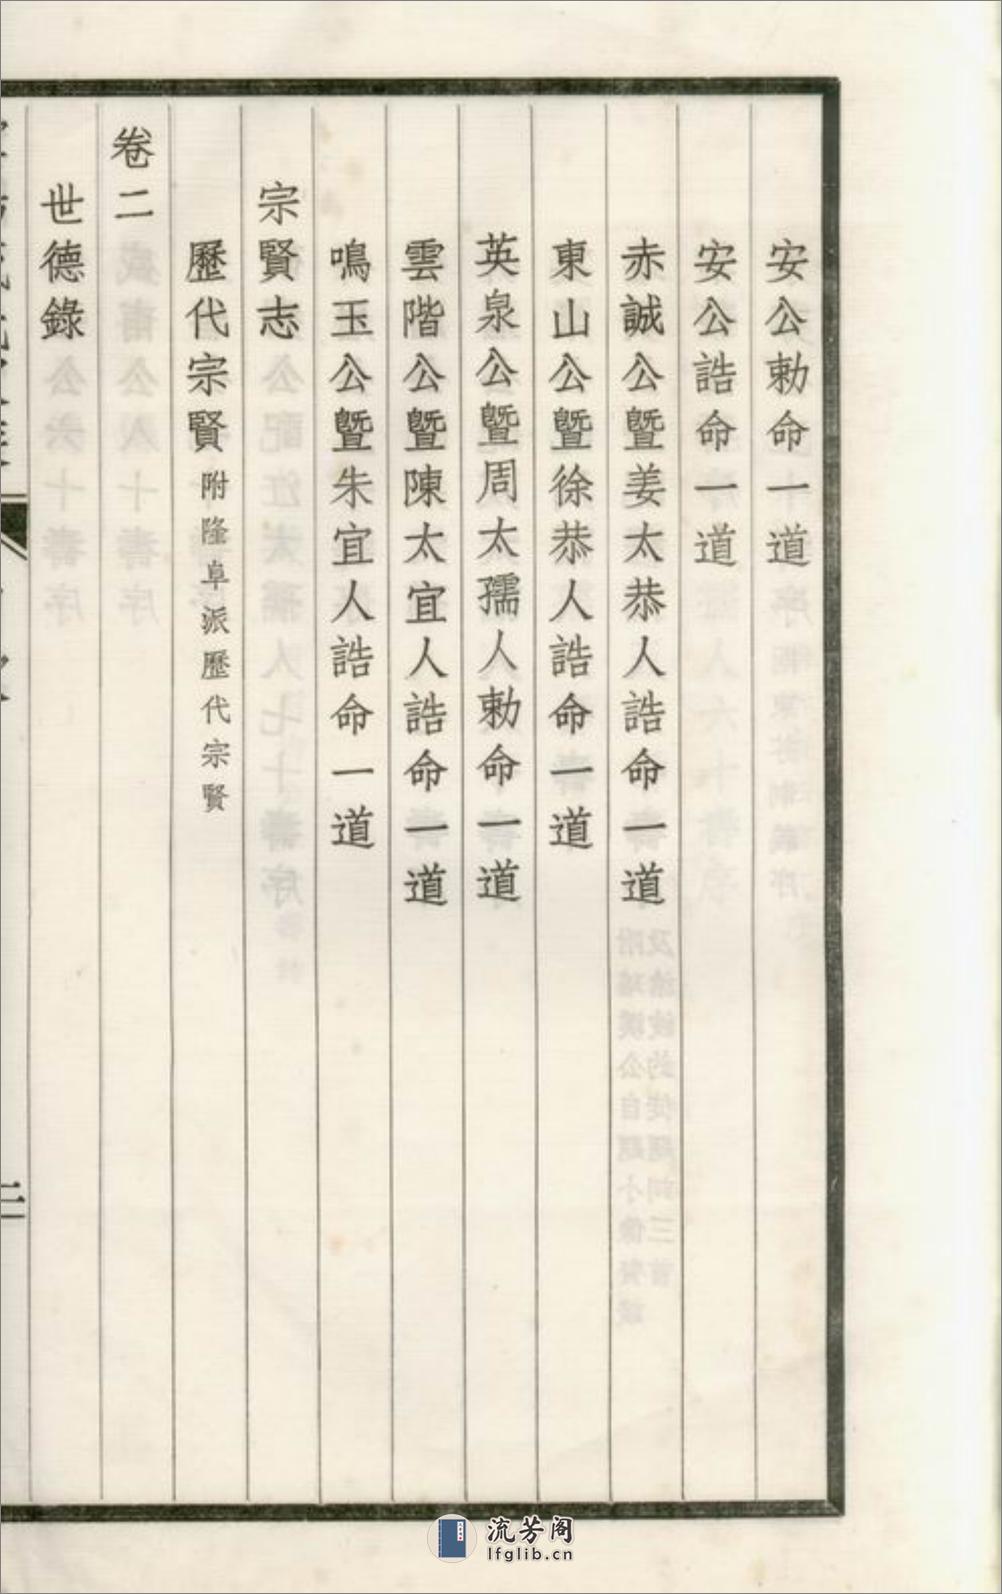 安公勅命一道
安公誥命一道
赤誠公暨姜太恭人誥命一道
東山公暨徐恭人誥命一道
英泉公暨周太孺人勅命一道
雲階公暨陳太宜人誥命一道
鳴玉公暨朱宜人誥命一道
宗賢志
歷代宗賢附隆阜派歷代宗賢
卷二
世德錄
二
流芳阁
lfglib.cn